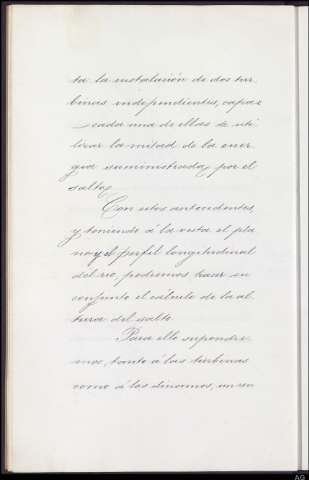 ta la instalación de dos tur-
binas independientes, capaz
cada una de ellas de uti-
lizar la mitad de la ener-
gia suministrada, por el
salto,
Con estos antecedentes,
y teniendo á la vista el pla
no y el perfil longitudinal
del rio, podremos hacer en
conjunto el cálculo de la al-
tura del salto.
Para ello supondre-
mos, tanto á las turbinas
como á los dinamos, un ren
AG